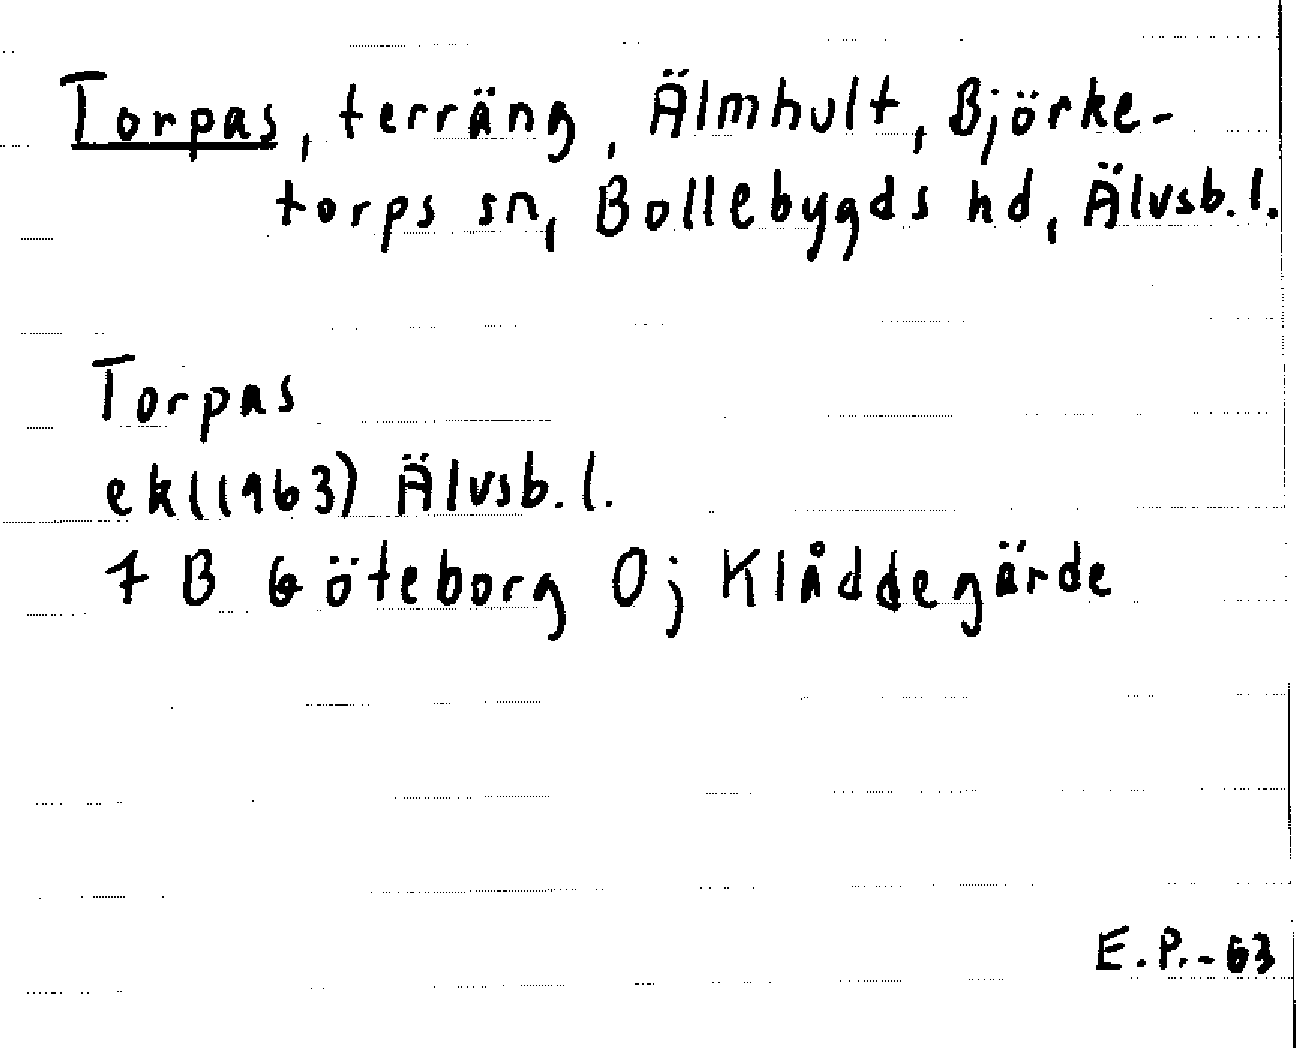 Torpas, terräng, Älmhult, Björke-
torps sn, Bollebygds hd, Älvsb. l.
Torpas
ek((1963) Älvsb. l.
7 B Göteborg 0j Klåddegärde
E. P. - 63